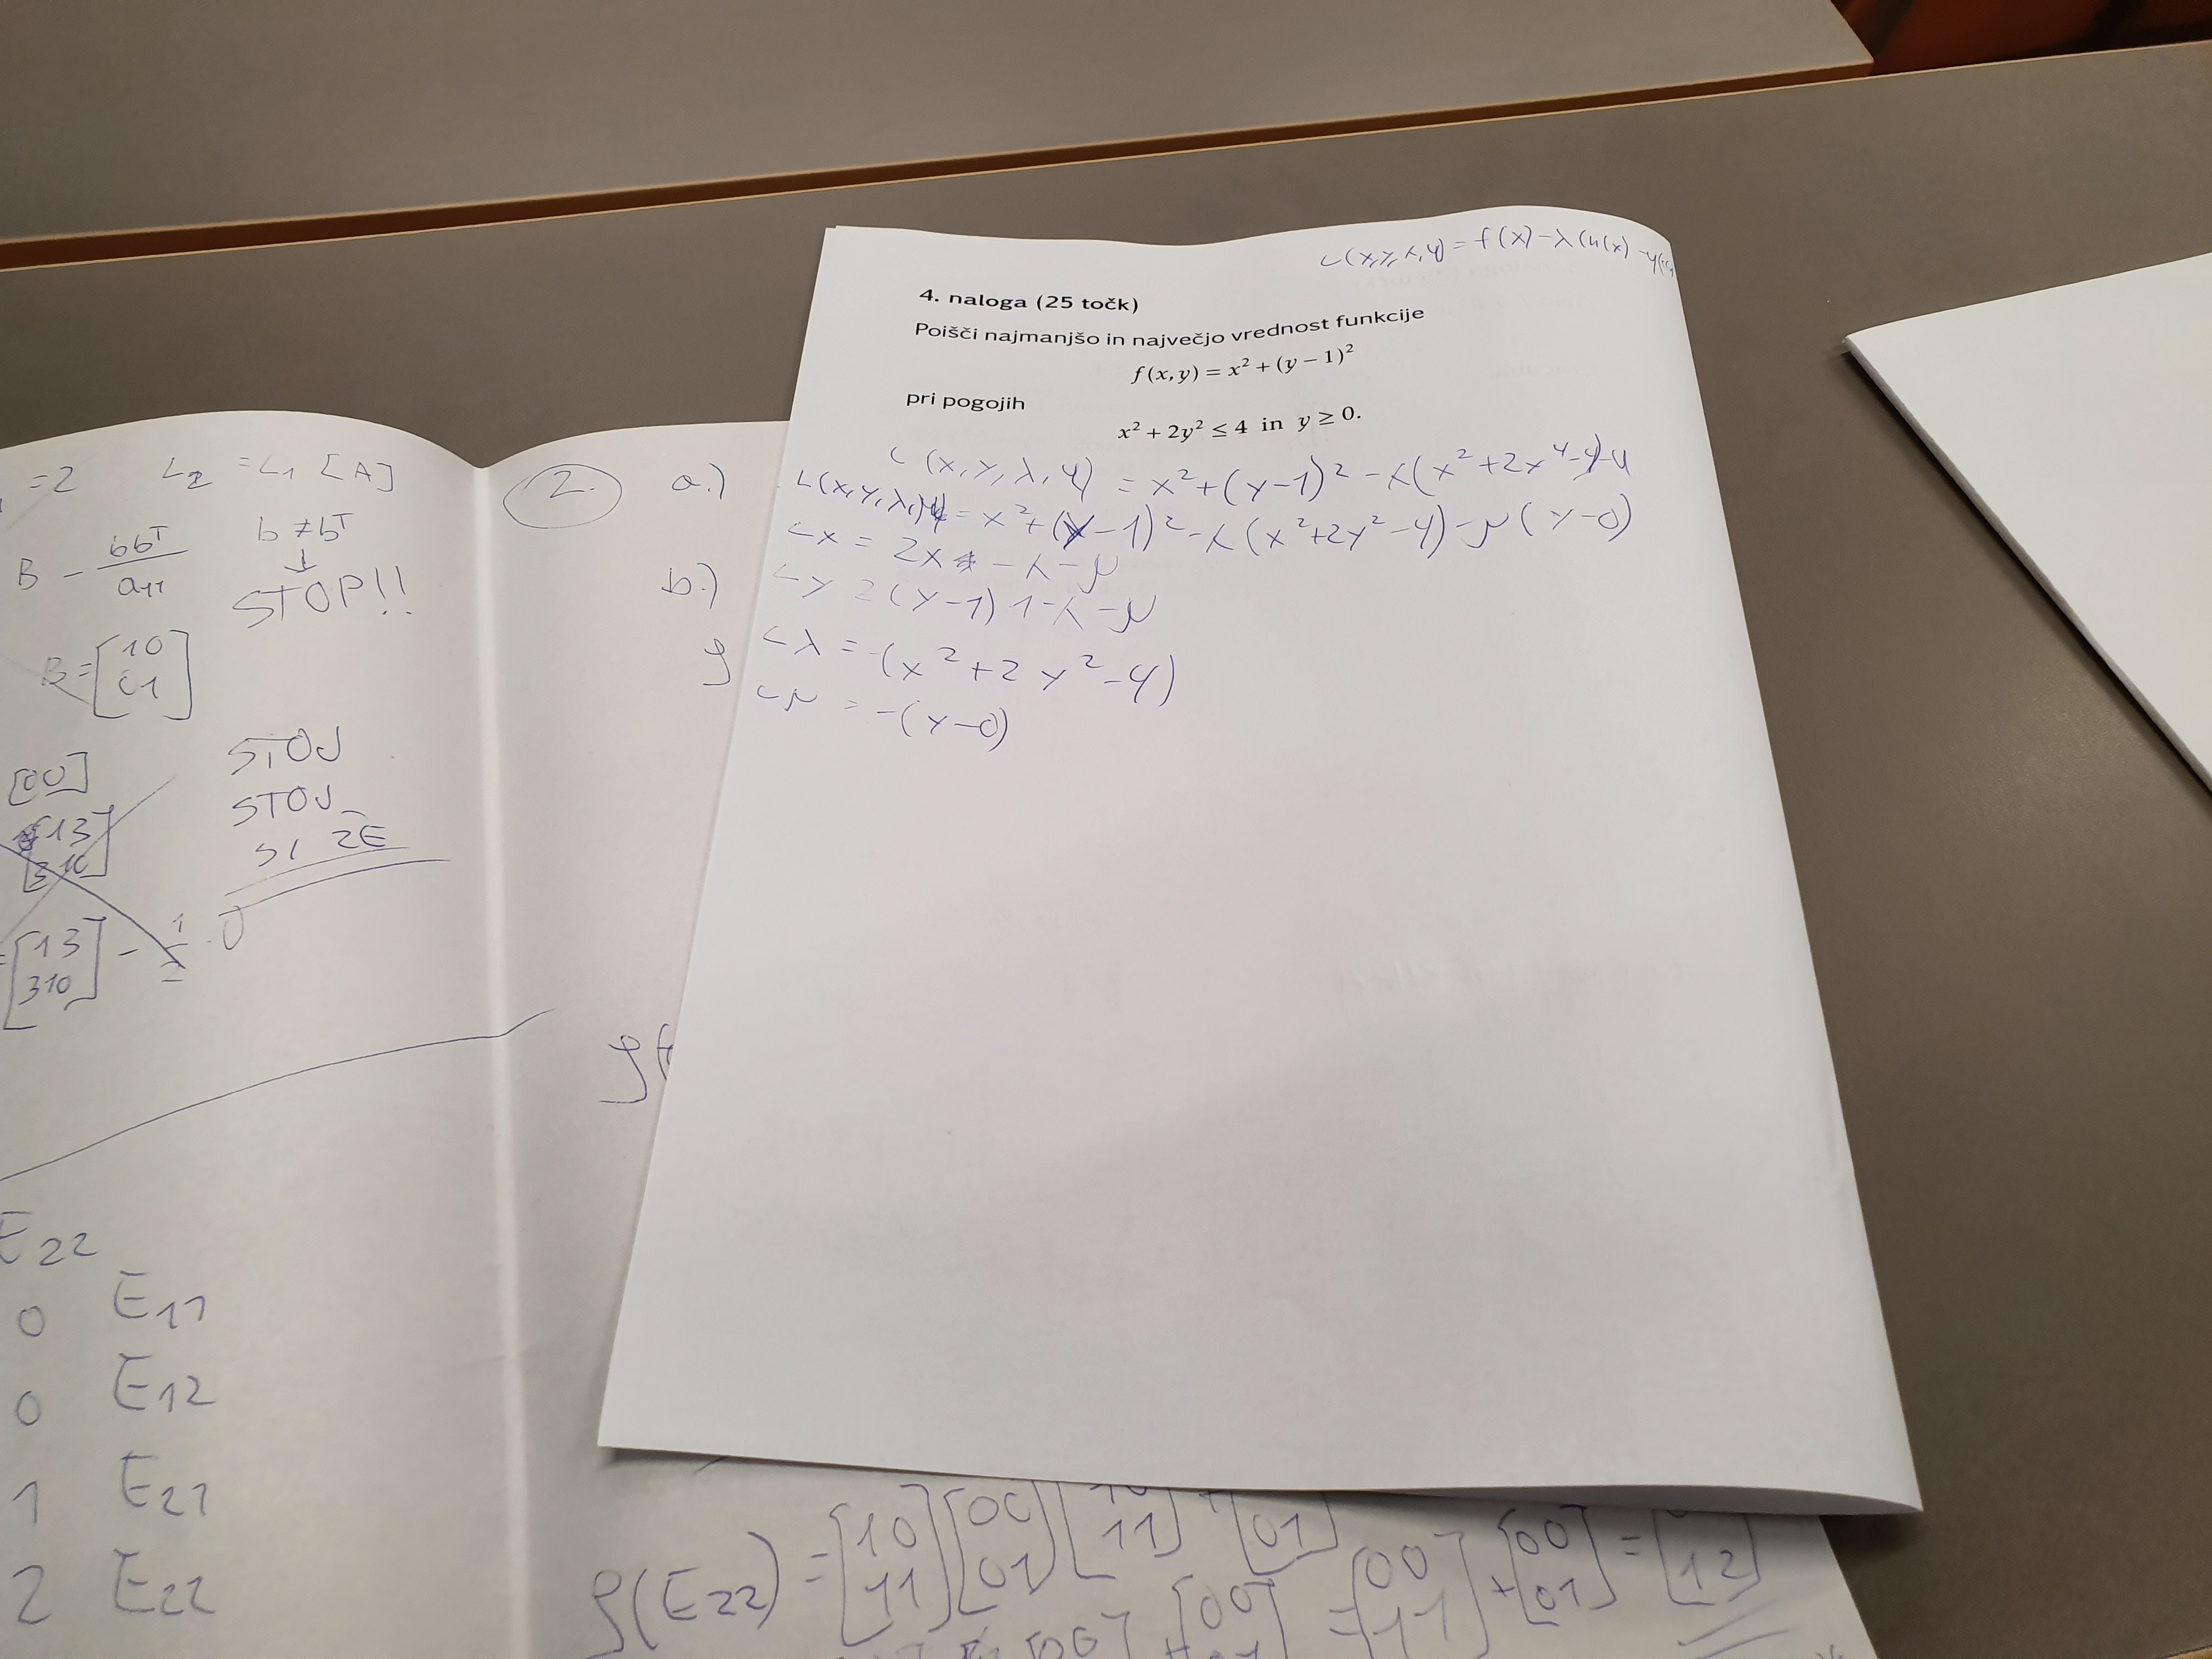 L(x,y,λ,μ) = f(x) - λ(h(x) -
4. naloga (25 točk)
Poišči najmanjšo in največjo vrednost funkcije
f(x,y) = x² + (y − 1)²
pri pogojih
x² + 2y² ≤ 4 in y ≥ 0.
L(x,y,λ,μ) = x²+(y-1)² -λ(x²+2x⁴-4)-μ
L(x,y,λ,μ) = x²+(y-1)²-λ(x²+2y²-4)-μ(y-0)
Lx = 2x - λ - μ
Ly 2(y-1)1-λ-μ
Lλ = -(x²+2y²-4)
Lμ = -(y-0)
=2 L2 = L1 [A]
B - bbᵀ/a11
b ≠ bᵀ
↓
STOP!!
B = [10
01]
STOJ
STOJ
SI ŽE
[00]
[13
310]
= [13
310] - 1/2
E22
0 E11
0 E12
1 E21
2 E22
2. a.)
b.)
ρ
ρ(E
ρ(E22) = [10
11] [00
01] [10
11] + [
01]
= [00
11] + [00
01] = [
12]